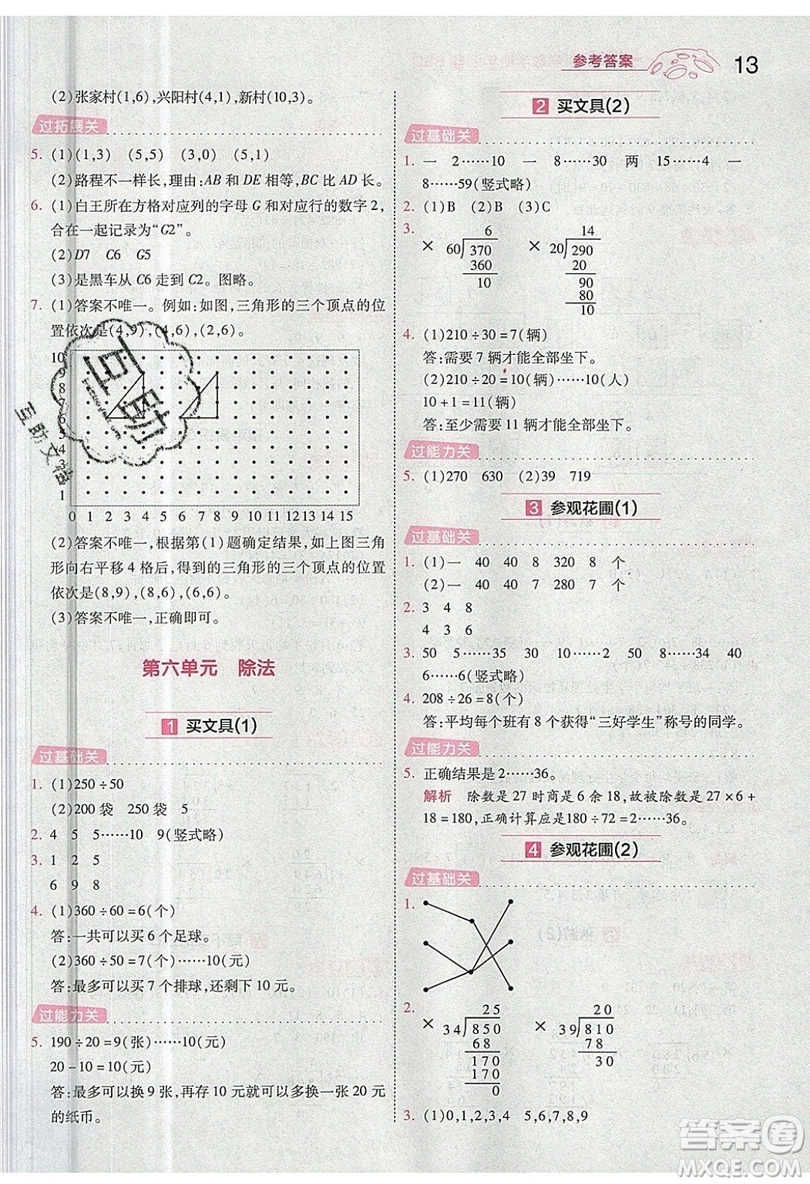 参考答案 13
(2)张家村(1,6),兴阳村(4,1),新村(10,3)。
过拓展关
5. (1)(1,3) (5,5) (3,0) (5,1)
(2)路程不一样长,理由:AB 和 DE 相等,BC 比 DA 长。
6. (1)白王所在方格对应列的字母 G 和对应行的数字 2,
合在一起记录为“G2”。
(2)D7 C6 G5
(3)是黑车从 C6 走到 C2。图略。
7. (1)答案不唯一。例如:如图,三角形的三个顶点的位
置依次是(4,9),(4,6),(2,6)。
10
9
8
7
6
5
4
3
2
1
0 1 2 3 4 5 6 7 8 9 10 11 12 13 14 15
(2)答案不唯一,根据第(1)题确定结果,如上图三角
形向右平移 4 格后,得到的三角形的三个顶点的位置
依次是(8,9),(8,6),(6,6)。
(3)答案不唯一,正确即可。
第六单元 除法
1 买文具(1)
过基础关
1. (1)250÷50
(2)200 袋 250 袋 5
2. 4 5 5……10 9(竖式略)
3. 1 2 5
6 9 8
4. (1)360÷60=6(个)
答:一共可以买 6 个足球。
(2)360÷50=7(个)……10(元)
答:最多可以买 7 个排球,还剩下 10 元。
过能力关
5. 190÷20=9(张)……10(元)
20-10=10(元)
答:最多可以换 9 张,再存 10 元就可以换一张 20 元
的纸币。
2 买文具(2)
过基础关
1. 一 2……10 一 8……30 两 15……4 一
8……59(竖式略)
2. (1)B (2)B (3)C
3. 6 14
× 60)370 × 20)290
360 20
10 90
80
10
4. (1)210÷30=7(辆)
答:需要 7 辆才能全部坐下。
(2)210÷20=10(辆)……10(人)
10+1=11(辆)
答:至少需要 11 辆才能全部坐下。
过能力关
5. (1)270 630 (2)39 719
3 参观花圃(1)
过基础关
1. (1)一 40 40 8 320 8 个
(2)一 40 40 7 280 7 个
2. 3 4 8
4 3 6
3. 50 5……35 5……10 7……34
6……6(竖式略)
4. 208÷26=8(个)
答:平均每个班有 8 个获得“三好学生”称号的同学。
过能力关
5. 正确结果是 2……36。
解析 除数是 27 时商是 6 余 18,故被除数是 27×6+
18=180,正确计算应是180÷72=2……36。
4 参观花圃(2)
过基础关
1.
2. 25 20
× 34)850 × 39)810
68 78
170 30
170
0
3. (1)0,1,2,3,4 5,6,7,8,9
互助
互助文档
答案圈
MXQE.COM